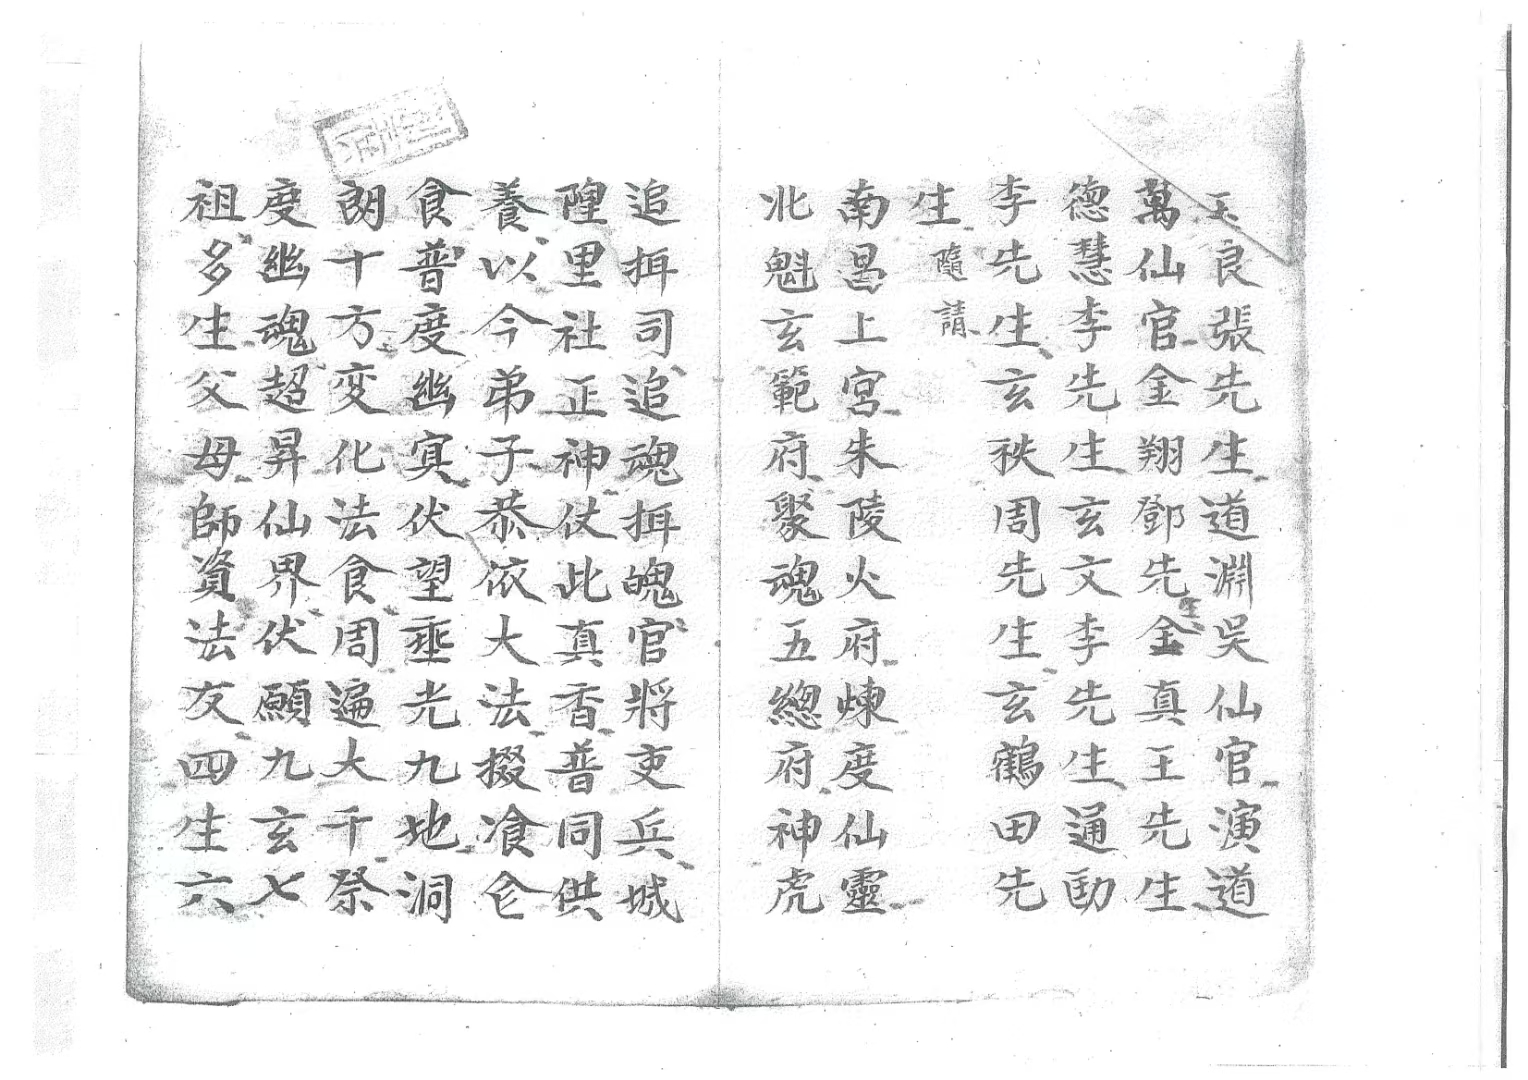 玉良張先生道淵吳仙官演道
萬仙官金翔鄧先生金真王先生
德慧李先生玄文李先生通勛
李先生玄秩周先生玄鶴田先
生隨請
南昌上宮朱陵火府煉度仙靈
北魁玄範府聚魂五總府神虎
追攝司追魂攝魄官將吏兵城
隍里社正神仗此真香普同供
養以今弟子恭依大法掇飡仺
食普度幽冥伏望垂光九地洞
朗十方变化法食周遍大千祭
度幽魂超昇仙界伏願九玄七
祖多生父母師資法友四生六